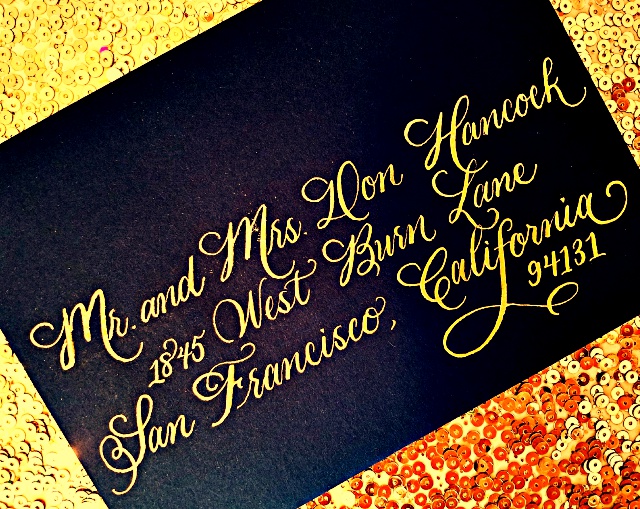 Mr. and Mrs. Don Hancock
1845 West Burn Lane
San Francisco, California
94131